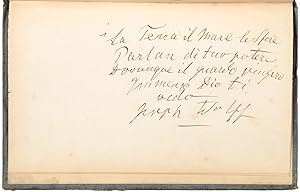 La Terra il Mare le Sfere
Parlan di tuo potere
Dovunque il guardo
Immenso Dio ti
vedo
Joseph Wolff